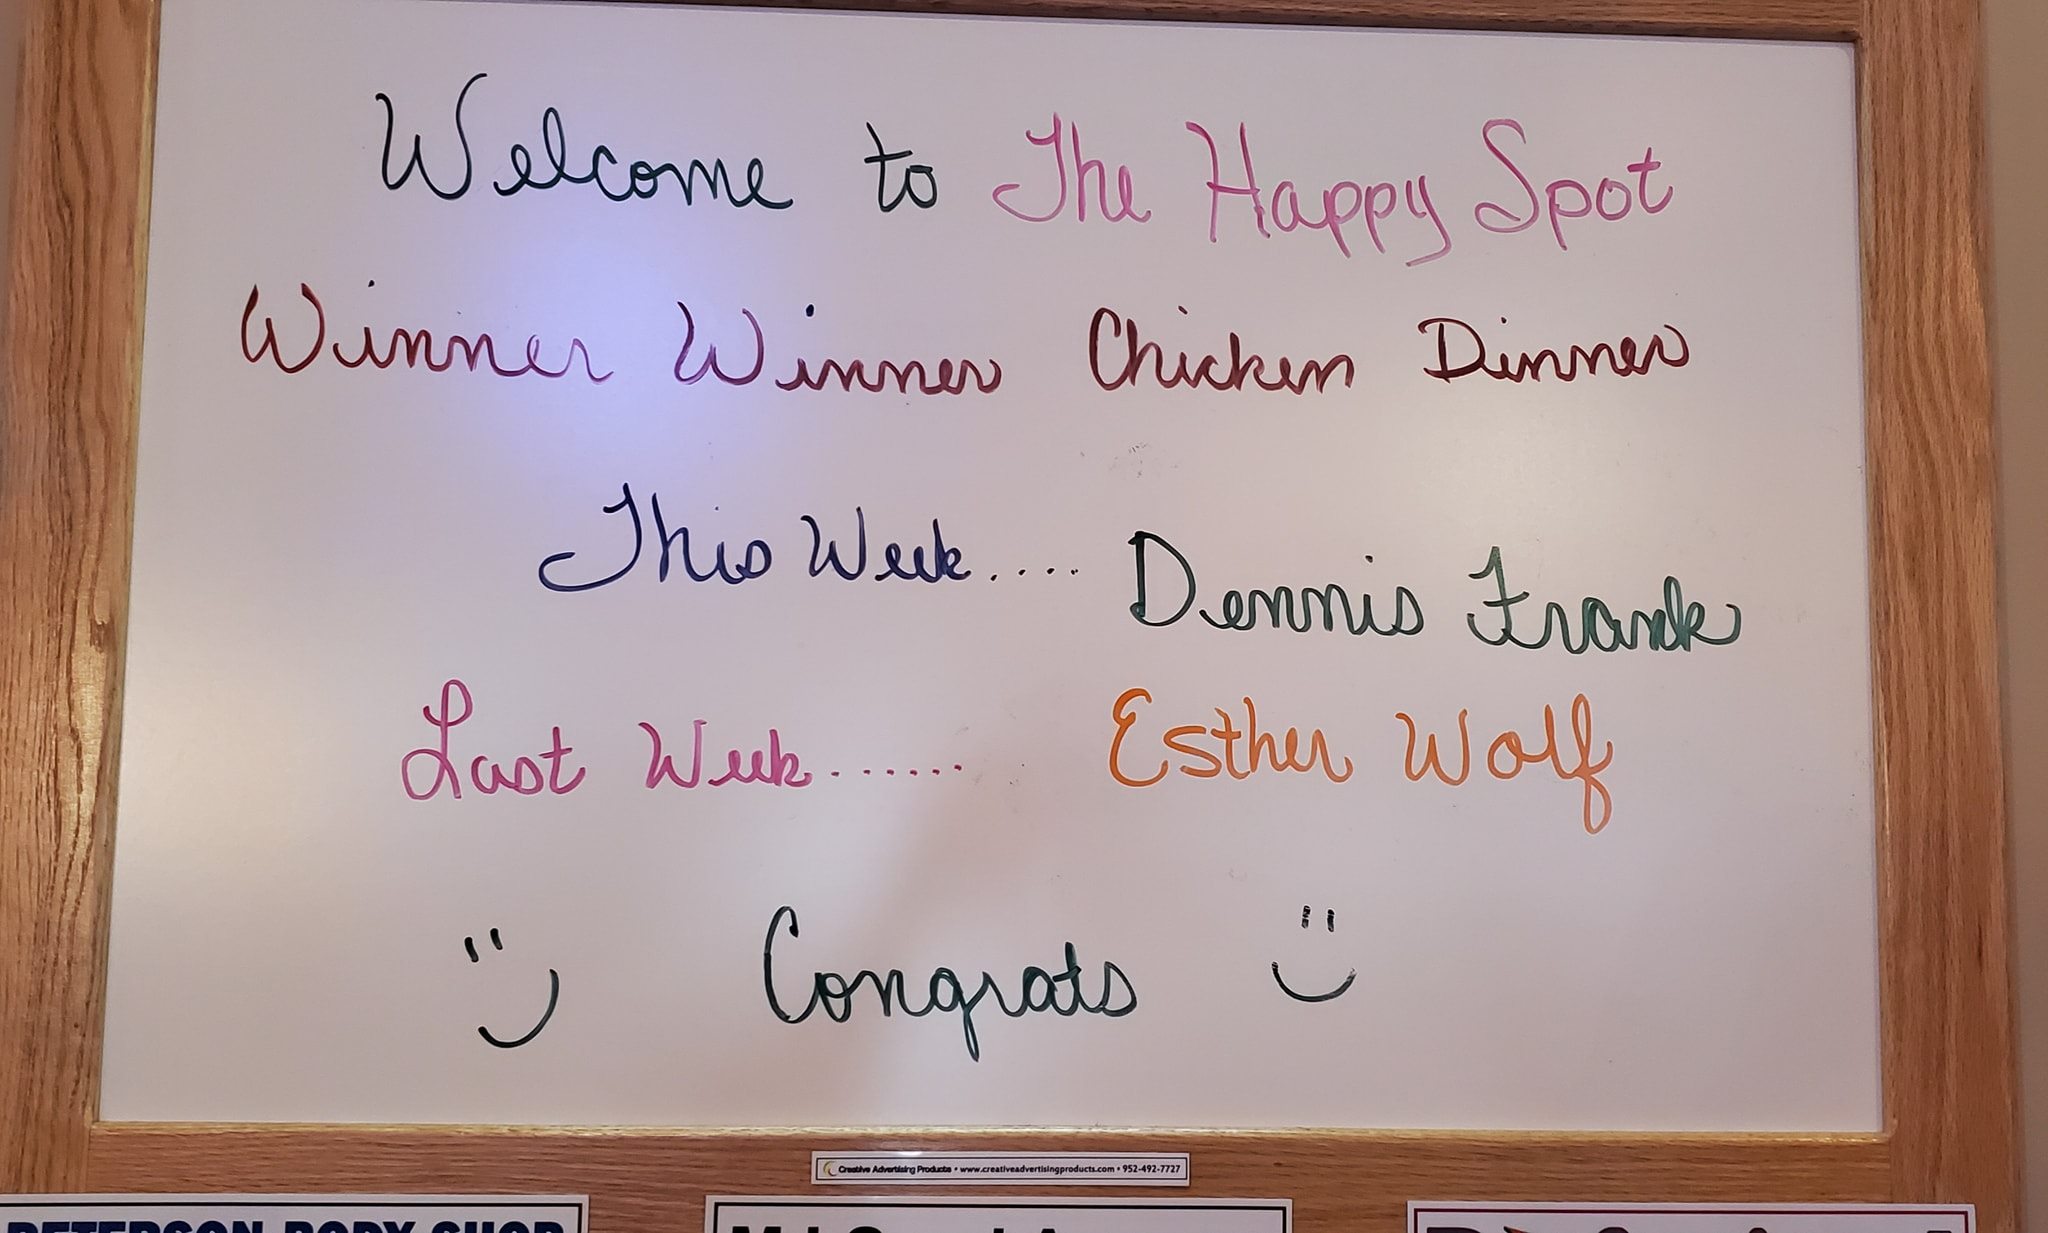 Welcome to The Happy Spot
Winner Winner Chicken Dinner
This Week.... Dennis Frank
Last Week....... Esther Wolf
Congrats
Creative Advertising Products • www.creativeadvertisingproducts.com • 952-492-7727
PETERSON BODY SHOP